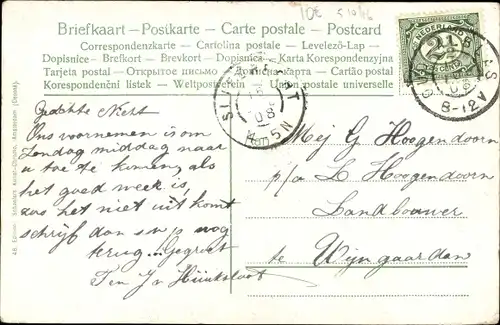 Briefkaart – Postkarte – Carte postale – Postcard
Correspondenzkarte – Cartolina postale – Levelező-Lap –
Dopisnice – Brefkort – Brevkort – Dopisnica – Karta Korespondenzyjna
Tarjeta postal – Открытое письмо – карта – Cartão postal
Korespondenční listek – Weltpostverein – Union postale universelle
10E
NEDERLAND
2½
CENT
8-12V
08
4-5N
Geachte Neht
Ons voornemen is om
Zondag middag naar
u toe te komen, als
het goed week is,
zoo het niet uit komt
schrijf dan s.v.p. nog
terug... Gegroet
Mej G Hoogendoorn
p/a L Hoogendoorn
Landbouwer
te Wijngaarden